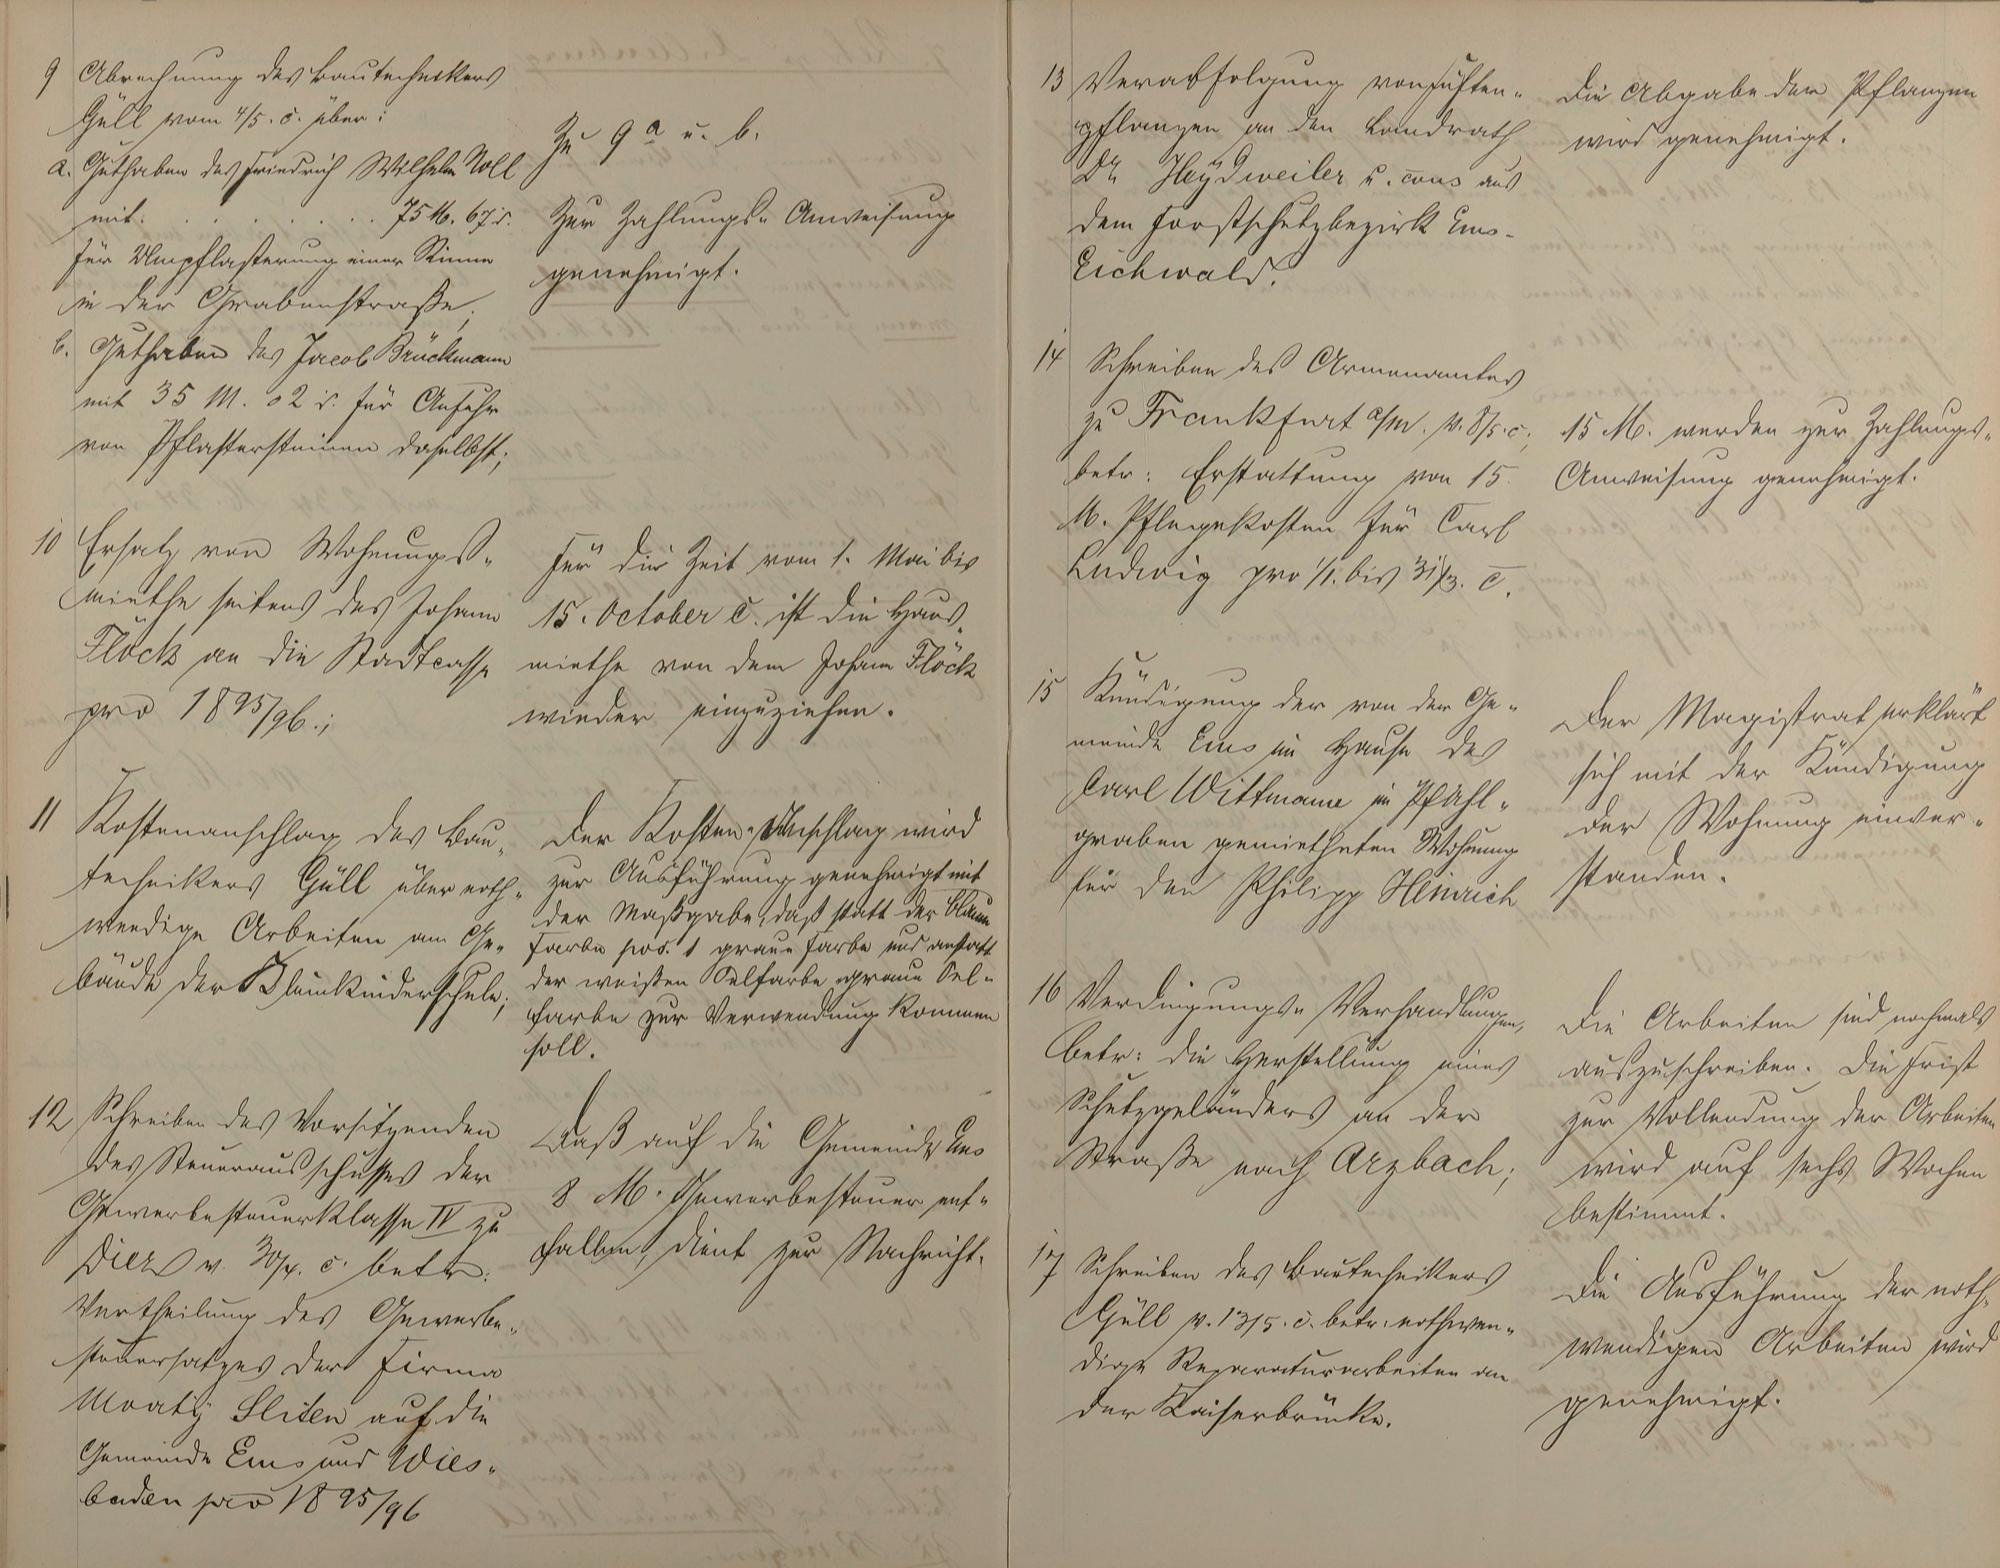 9 Abrechnung des Bautechnikers
Güll vom 4/5. c. über:
a. Guthaben des Friedrich Wilhelm Noll
mit . . . . . . . . 75 M. 67 d.
für Umpflasterung einer Rinne
in der Grabenstraße,
b. Guthaben des Jacob Brückmann
mit 35 M. 02 d. für Anfuhr
von Pflastersteinen daselbst;
Zu 9 a u. b.
Zur Zahlungs- Anweisung
genehmigt.
10 Ersatz von Wohnungs-
miethe seitens des Johann
Flöck an die Stadtcasse
pro 1895/96.;
Für die Zeit vom 1. Mai bis
15. October c. ist die Haus-
miethe von dem Johann Flöck
wieder einzuziehen.
11 Kostenanschlag des Bau-
technikers Güll über noth-
wendige Arbeiten am Ge-
bäude der Kleinkinderschule;
Der Kosten-Anschlag wird
zur Ausführung genehmigt mit
der Maßgabe, daß statt der blauen
Farbe pos. 1 graue Farbe und anstatt
der weißen Oelfarbe graue Oel-
farbe zur Verwendung kommen
soll.
12 Schreiben des Vorsitzenden
des Steuerausschusses der
Gewerbesteuerklasse IV zu
Diez v. 30/4. c. betr.
Vertheilung des Gewerbe-
steuersatzes der Firma
auf die
Gemeinde Ems und Wies-
baden pro 1895/96
Daß auf die Gemeinde Ems
8 M. Gewerbesteuer ent-
fallen, dient zur Nachricht.
13 Verabfolgung von Fichten-
pflanzen an den Landrath
Dr. Heydweiler u. cons aus
dem Forstschutzbezirk Ems-
Eichwald.
Die Abgabe der Pflanzen
wird genehmigt.
14 Schreiben des Armenamtes
zu Frankfurt a/m. v. 8/5. c;
betr: Erstattung von 15
M. Pflegekosten für Carl
Ludwig pro 1/1. bis 31/3. c.
15 M. werden zur Zahlungs-
Anweisung genehmigt.
15 Kündigung der von der Ge-
meinde Ems im Hause des
Carl Wittmann im Pfahl-
graben gemietheten Wohnung
für den Philipp Heinrich
Der Magistrat erklärt
sich mit der Kündigung
der Wohnung einver-
standen.
16 Verdingungs- Verhandlungen,
betr: die Herstellung eines
Schutzgeländers an der
Straße nach Arzbach;
Die Arbeiten sind nochmals
auszuschreiben. Die Frist
zur Vollendung der Arbeiten
wird auf sechs Wochen
bestimmt.
17 Schreiben des Bautechnikers
Güll v. 13/5. c. betr. nothwen-
dige Reparaturarbeiten an
der Kaiserbrücke.
Die Ausführung der noth-
wendigen Arbeiten wird
genehmigt.